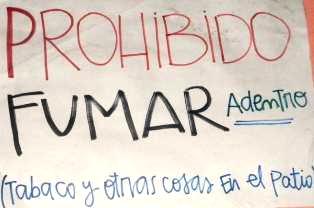 PROHIBIDO
FUMAR Adentro
(Tabaco y otras cosas En el Patio)